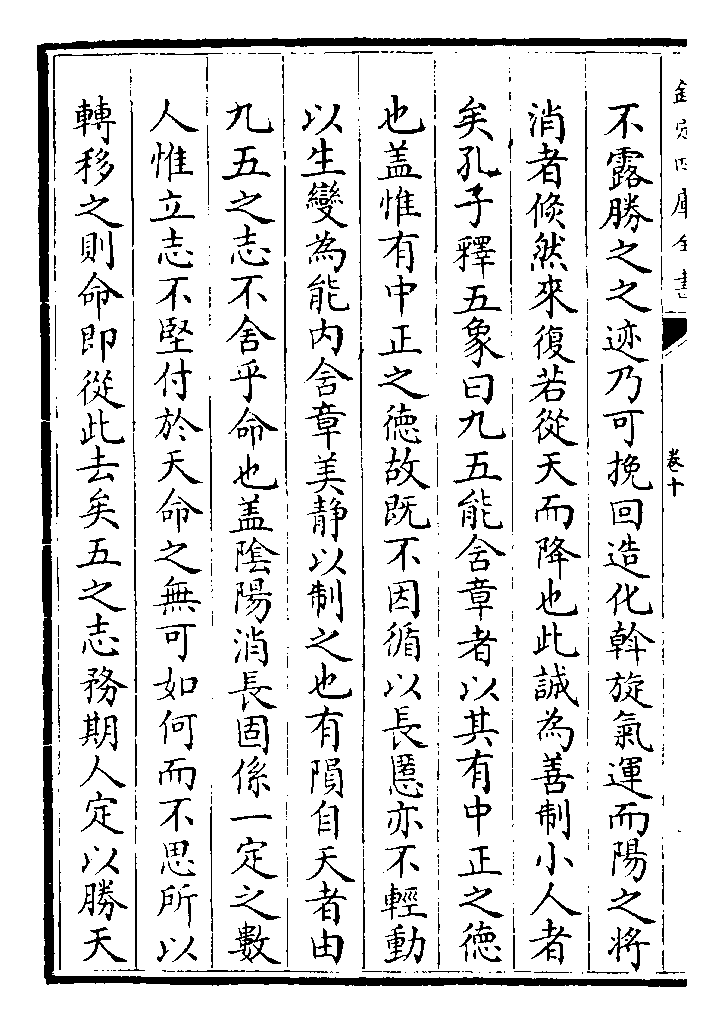 欽定四庫全書
卷十
不露勝之之迹乃可挽回造化斡旋氣運而陽之將
消者倐然來復若從天而降也此誠為善制小人者
矣孔子釋五象曰九五能含章者以其有中正之德
也盖惟有中正之德故既不因循以長慝亦不輕動
以生變為能内含章美静以制之也有隕自天者由
九五之志不舍乎命也盖陰陽消長固係一定之數
人惟立志不堅付於天命之無可如何而不思所以
轉移之則命即從此去矣五之志務期人定以勝天